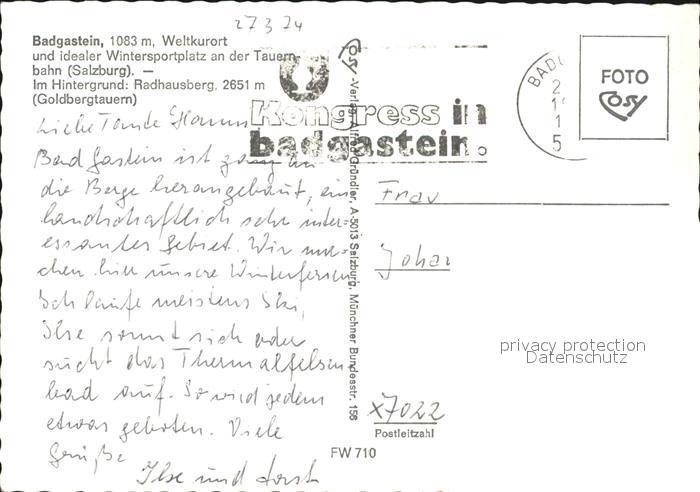 27 3 74
Badgastein, 1083 m, Weltkurort
und idealer Wintersportplatz an der Tauern-
bahn (Salzburg). —
Im Hintergrund: Radhausberg, 2651 m
(Goldbergtauern)
Kongress in
badgastein.
BADG
FOTO
Cosy
Liebe Tante Hanna
Bad Gastein ist ganz an
die Berge herangebaut, ein
landschaftlich sehr inter-
essantes Gebiet. Wir ma-
chen hier unsere Winterferien
Ich laufe meistens Ski,
Ilse sonnt sich oder
sucht das Thermalfelsen
bad auf. So wird jedem
etwas geboten. Viele
Grüße
Ilse und Horst
Cosy-Verlag Alfred Gründler, A-5013 Salzburg, Münchner Bundesstr. 156
Frau
Johan
privacy protection
Datenschutz
X7022
Postleitzahl
FW 710